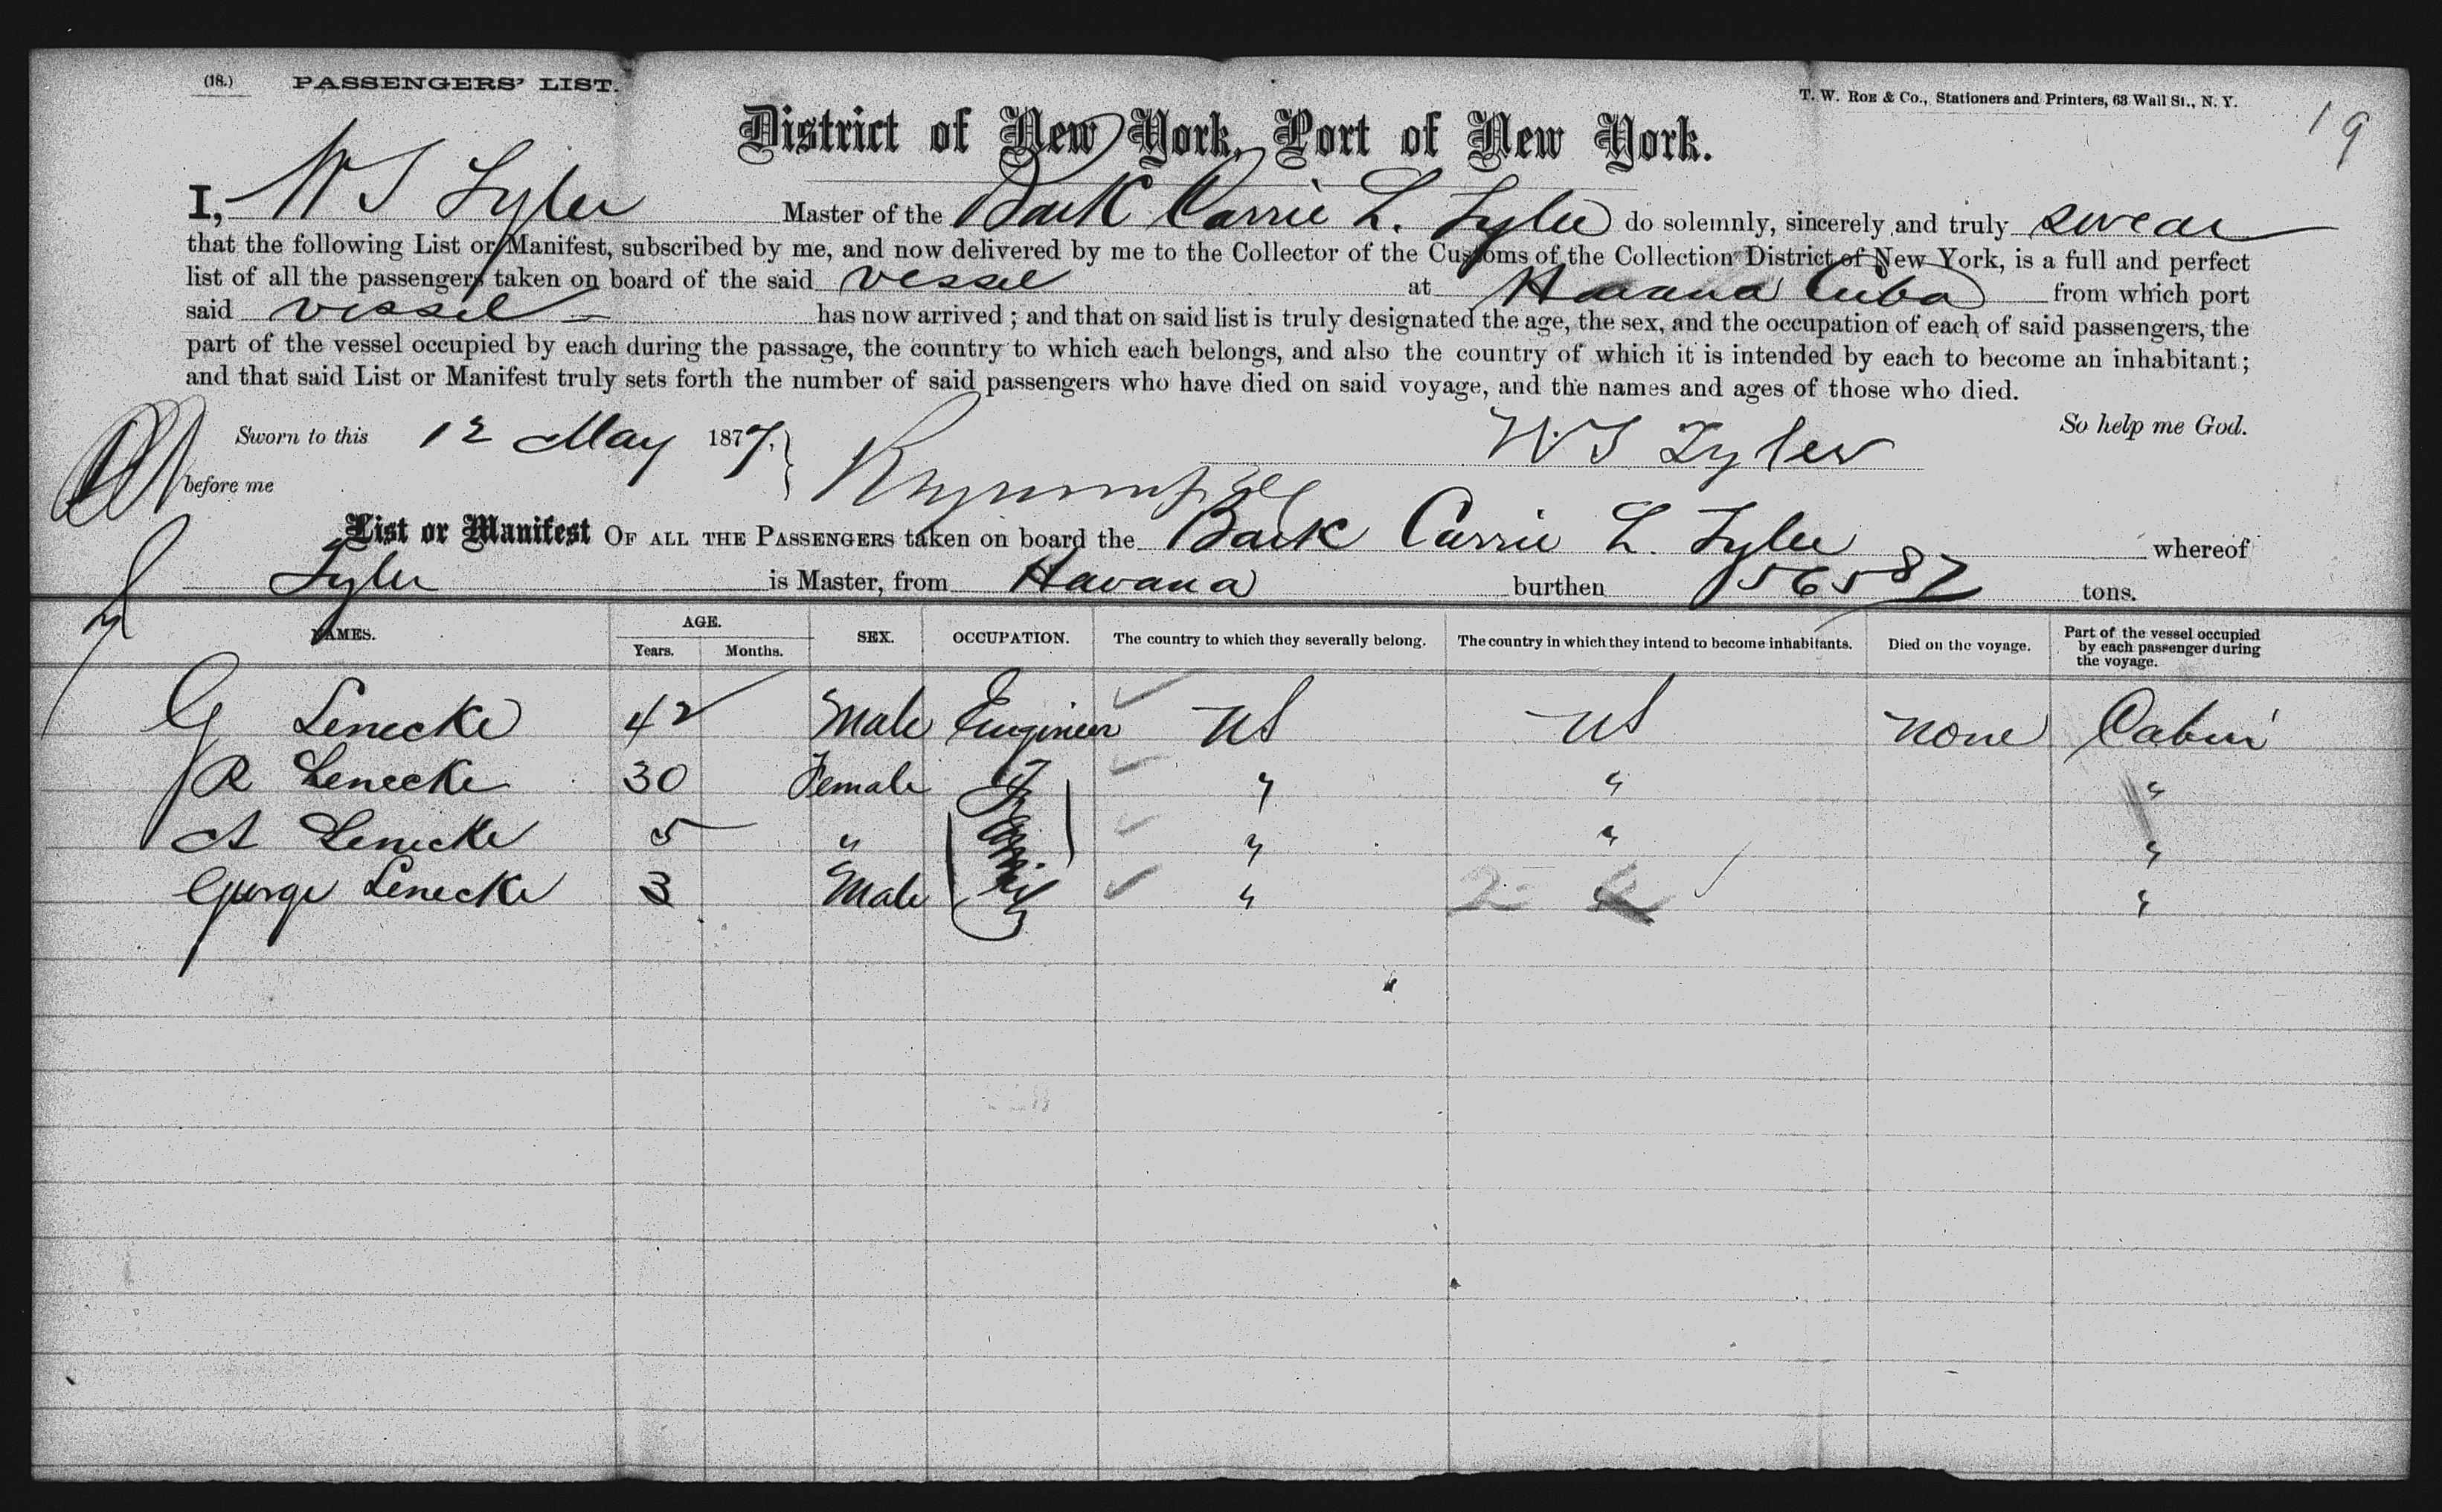 (18.) PASSENGERS' LIST. T. W. ROE & Co., Stationers and Printers, 63 Wall St., N. Y.
19
District of New York, Port of New York.
I, W S Tyler Master of the Bark Carrie L. Tyler do solemnly, sincerely and truly swear
that the following List or Manifest, subscribed by me, and now delivered by me to the Collector of the Customs of the Collection District of New York, is a full and perfect
list of all the passengers taken on board of the said vessel at Havana Cuba from which port
said vessel has now arrived ; and that on said list is truly designated the age, the sex, and the occupation of each of said passengers, the
part of the vessel occupied by each during the passage, the country to which each belongs, and also the country of which it is intended by each to become an inhabitant ;
and that said List or Manifest truly sets forth the number of said passengers who have died on said voyage, and the names and ages of those who died.
Sworn to this 12 May 1877. So help me God.
W S Tyler
before me
List or Manifest OF ALL THE PASSENGERS taken on board the Bark Carrie L. Tyler whereof
Tyler is Master, from Havana burthen 565 87 tons.
NAMES. AGE. Years. Months. SEX. OCCUPATION. The country to which they severally belong. The country in which they intend to become inhabitants. Died on the voyage. Part of the vessel occupied by each passenger during the voyage.
G Lenecke 42 Male Engineer US US none Cabin
R Lenecke 30 Female " " "
A Lenecke 5 " " " "
George Lenecke 3 Male " " "